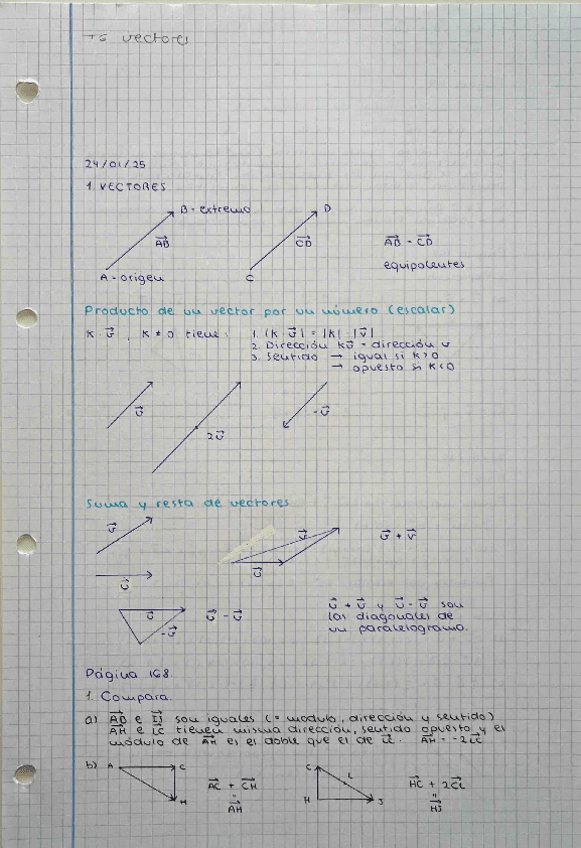 T5 vectores
24/01/25
1 VECTORES
B - extremo
D
AB
CD
AB = CD
equipolentes
A - origen
C
Producto de un vector por un número (escalar)
K · v , K ≠ 0 tiene:
1. |K · v| = |K| · |v|
2. Dirección Kv = dirección v
3. Sentido → igual si K>0
→ opuesto si K<0
v
2v
-v
Suma y resta de vectores
u + v
u - v
u + v y u - v son
las diagonales de
un paralelogramo.
Página 168
1. Compara.
son iguales (= modulo, dirección y sentido)
AH e LC tienen misma dirección, sentido opuesto y el
módulo de AH es el doble que el de LC. AH = -2LC
b) A C H
AC + CH
"
AH
C L H J
HC + 2CL
"
HJ